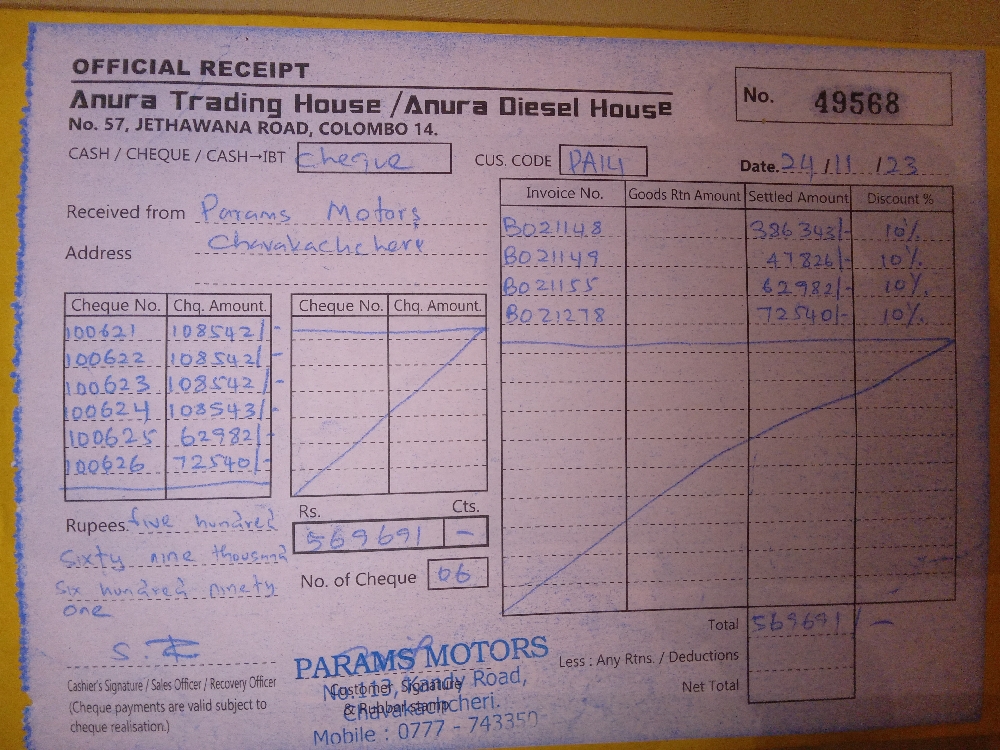 OFFICIAL RECEIPT
Anura Trading House / Anura Diesel House
No. 57, JETHAWANA ROAD, COLOMBO 14.
No. 49568
CASH / CHEQUE / CASH→IBT Cheque
CUS. CODE PA14
Date. 24/11/23
Received from Params Motors
Address Chavakachchere
Invoice No. Goods Rtn Amount Settled Amount Discount %
B021148 386343/- 10%
B021149 47826/- 10%
B021155 62982/- 10%
B021278 72540/- 10%
Cheque No. Chq. Amount. Cheque No. Chq. Amount.
100621 108542/-
100622 108542/-
100623 108542/-
100624 108543/-
100625 62982/-
100626 72540/-
Rupees. five hundred
Sixty nine thousand
Six hundred ninety
one
Rs. Cts.
569691 -
No. of Cheque 06
Total 569691/-
Less : Any Rtns. / Deductions
Net Total
Cashier's Signature / Sales Officer / Recovery Officer
(Cheque payments are valid subject to
cheque realisation.)
PARAMS MOTORS
No.113, Kandy Road,
Customer Signature
Chavakachcheri.
& Rubber stamp
Mobile : 0777 - 743350